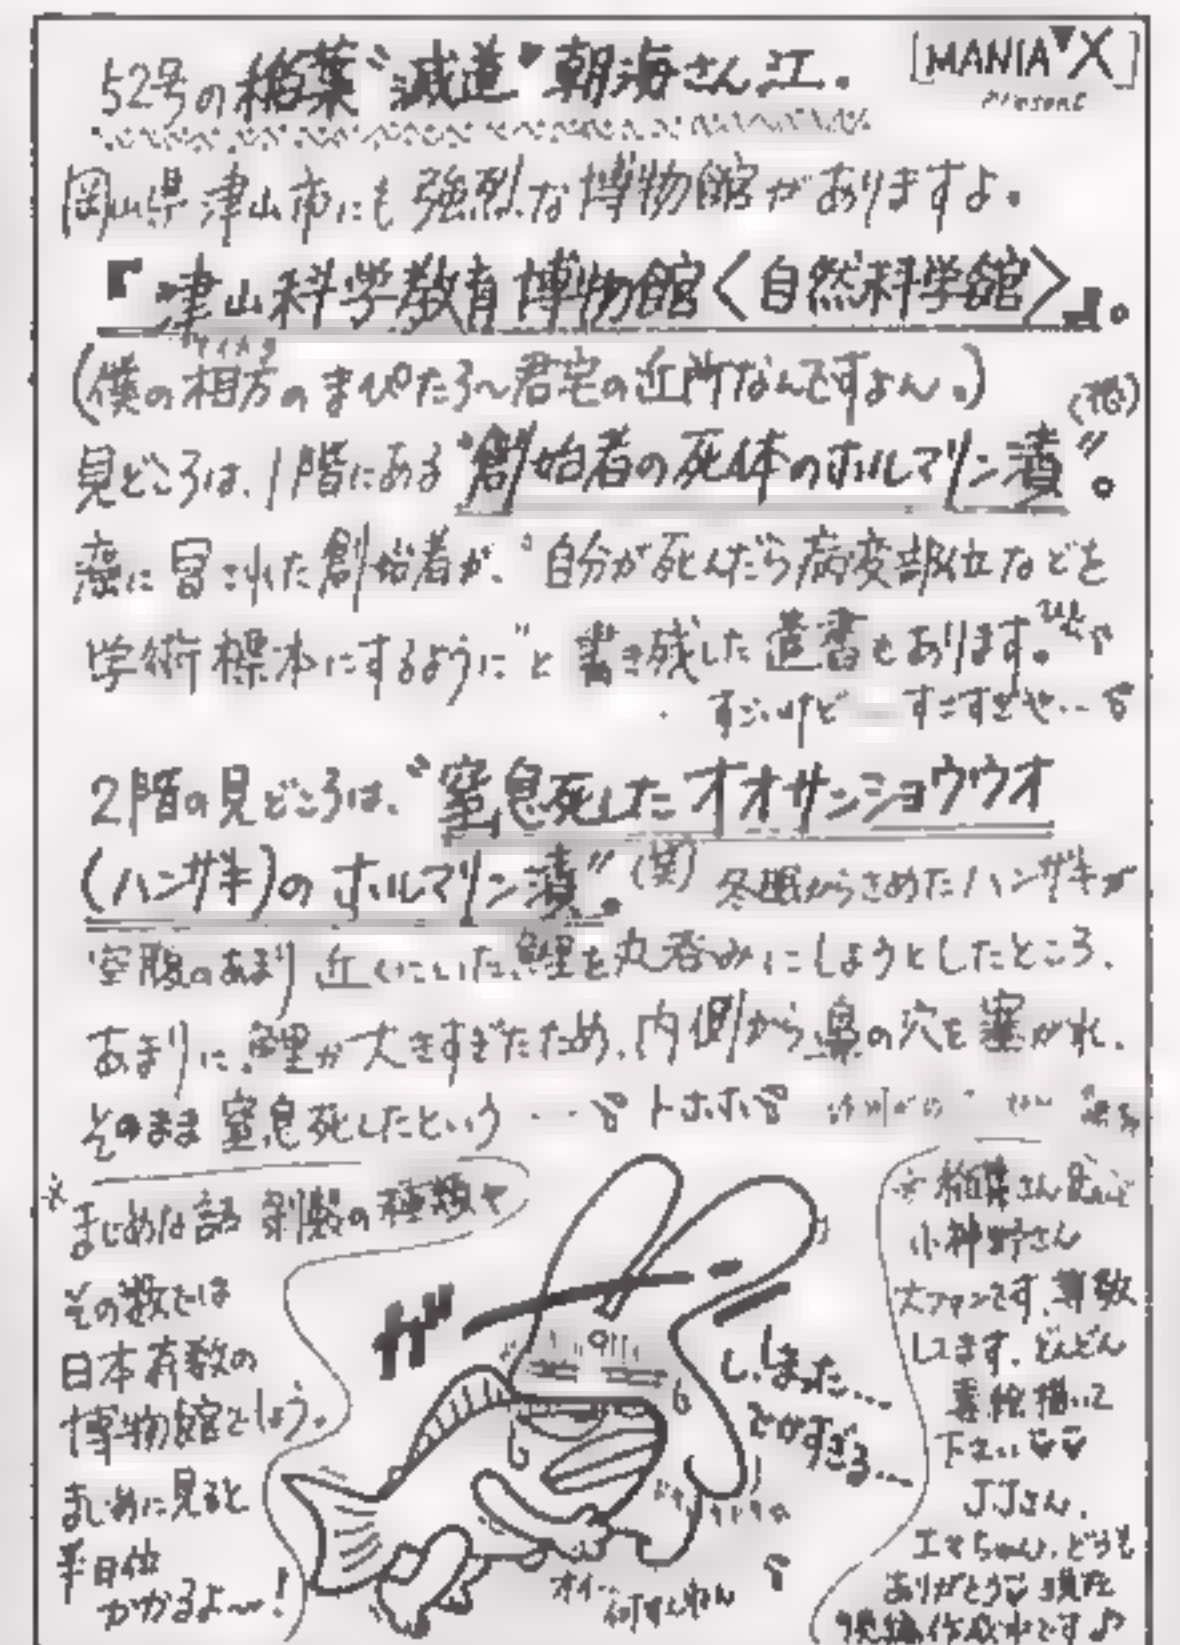 52号の稲葉"滅道"朝海さん江.
[MANIA▼X]
Present
岡山県津山市にも強烈な博物館がありますよ。
『津山科学教育博物館〈自然科学館〉』。
(僕の相方のまぴたろ〜君宅の近所なんですよん。)
見どころは、1階にある"創始者の死体のホルマリン漬"。
癌に冒された創始者が、"自分が死んだら病変部位などを
学術標本にするように"と書き残した遺書もあります。
すごいけど
2階の見どころは、"窒息死したオオサンショウウオ
(ハンザキ)のホルマリン漬"。(笑) 冬眠からさめたハンザキが
空腹のあまり近くにいた鯉を丸呑みにしようとしたところ、
あまりに鯉が大きすぎたため、内側から鼻の穴を塞がれ、
そのまま窒息死したという…トホホ
※まじめな話 剥製の種類や
その数では
日本有数の
博物館でしょう。
まじめに見ると
半日位
かかるよ〜!
ガーン
し、しまった…
でかすぎる…
オイ…
何すんねん
※稲葉さん
小神野さん
大ファンです、尊敬
してます。どんどん
描いて
下さい
JJさん、
エマちゃん、どうも
ありがとう